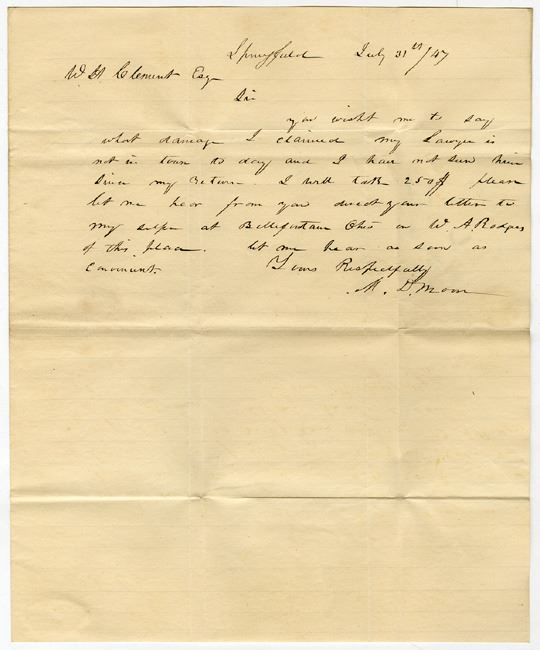 Springfield July 31th/47
W H Clement Esqr
Sir
you wisht me to say
what damage I claimed my Lawyer is
not in town to day and I have not seen him
since my return. I will take 250$ please
let me hear from you direct your letter to
my self at Bellefontain Ohio or W. A Rodgers
of this place. let me hear as soon as
convinient
Yours Respectfully
M. D. Moon